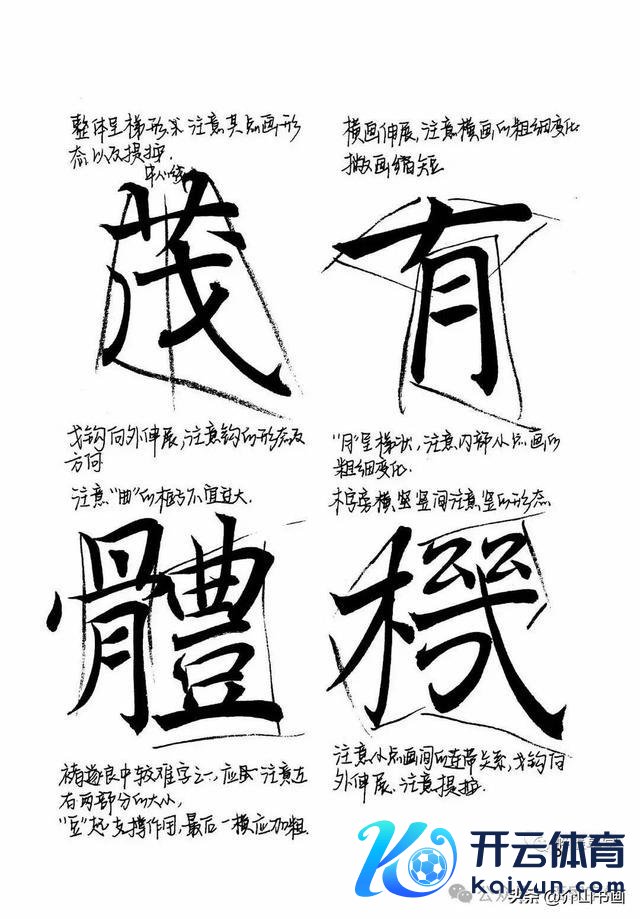 整体呈梯形状,注意其点画形
态以及提按.
中心线
茂
戈钩向外伸展,注意钩的形态及
方向
横画伸展,注意横画的粗细变化
撇画缩短
有
"月"呈梯状,注意内部小点画的
粗细变化.
注意"曲"的框架不宜过大.
體
褚遂良中较难字之一,应注意左
右两部分的大小,
"豆"起支撑作用,最后一横应加粗.
木字旁横竖竖间注意竖的形态
機
注意小点画间的连带关系,戈钩向
外伸展.注意提按.
开云体育
kaiyun.com
头条@介山书画